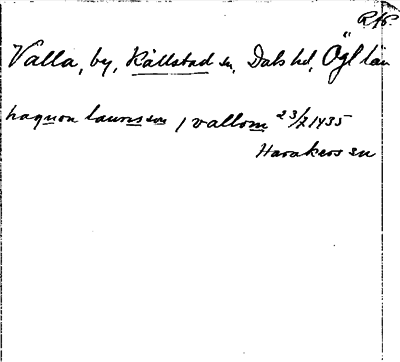 RAP
Valla, by, Källstad sn, Dals hd, Ögl län
haquon laurisson i vallom 23/7 1435
Harakers sn